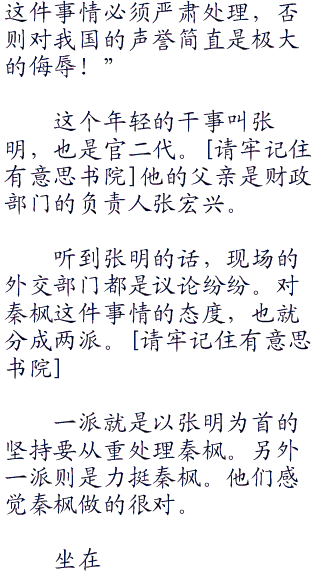 这件事情必须严肃处理，否
则对我国的声誉简直是极大
的侮辱！”
这个年轻的干事叫张
明，也是官二代。[请牢记住
有意思书院]他的父亲是财政
部门的负责人张宏兴。
听到张明的话，现场的
外交部门都是议论纷纷。对
秦枫这件事情的态度，也就
分成两派。[请牢记住有意思
书院]
一派就是以张明为首的
坚持要从重处理秦枫。另外
一派则是力挺秦枫。他们感
觉秦枫做的很对。
坐在